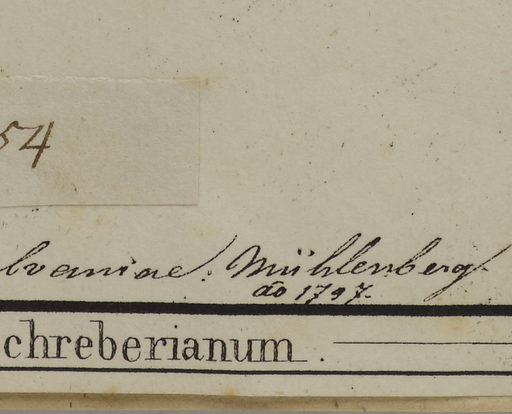 54
lvaniae. Mühlenberg.
do 1797.
chreberianum.